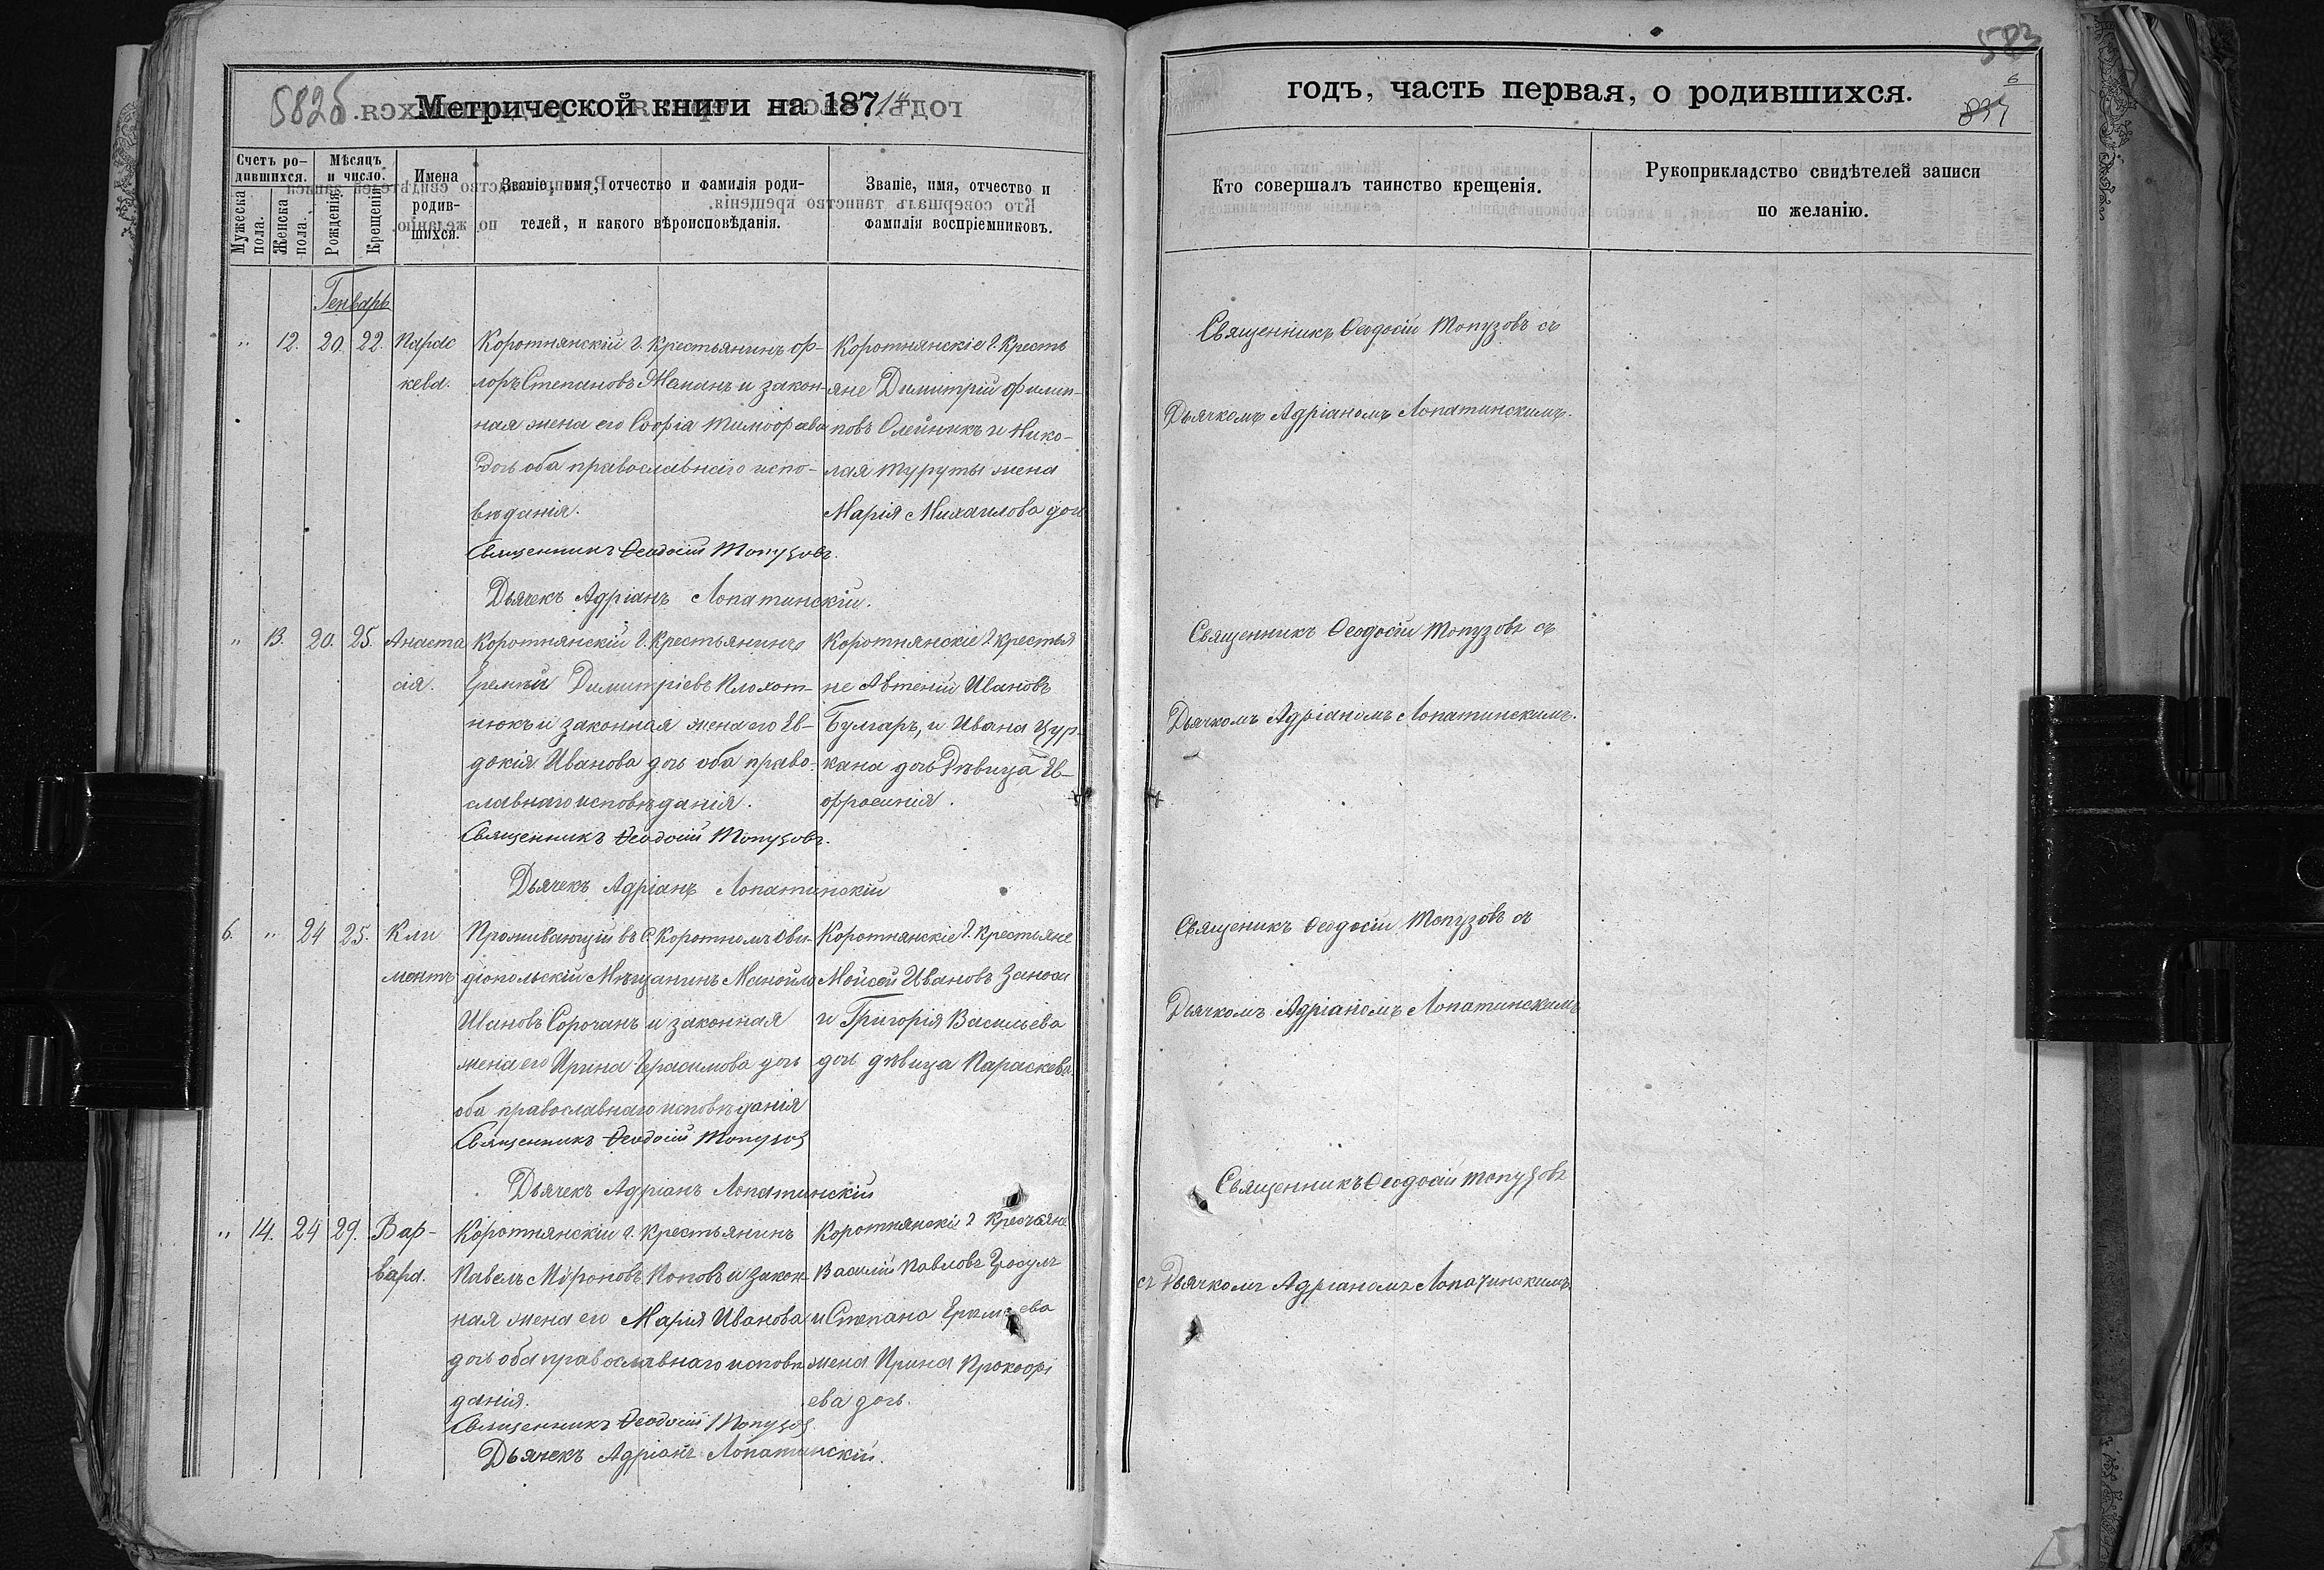 582б
Метрической книги на 1871й
Счетъ ро-
дившихся.
Мужеска пола.
Женска пола.
Мѣсяцъ
и число.
Рожденія.
Крещенія.
Имена
родив-
шихся.
Званіе, имя, отчество и фамилія роди-
телей, и какого вѣроисповѣданія.
Званіе, имя, отчество и
фамилія воспріемниковъ.
Генварь
" 12. 20. 22. Парас
кева.
Коротнянскій г. Крестьянинъ Ф-
лоръ Степановъ Жаманъ и закон-
ная жена его Софіа Тимоѳѣева
дочь оба православнаго испо-
вѣданія.
Священникъ Ѳеодосій Топузовъ.
Дьячекъ Адріанъ Лопатинскій.
Коротнянскіе г. Кресть
яне Димитрій Филип-
повъ Олейникъ и Нико-
лая Туруты жена
Марія Михаилова дочь
" 13. 20. 25. Анаста
сія.
Коротнянскій г. Крестьянинъ
Еремѣй Димитріевъ Плохот-
нюкъ и законная жена его Ев-
докія Иванова дочь оба право-
славнаго исповѣданія.
Священникъ Ѳеодосій Топузовъ.
Дьячекъ Адріанъ Лопатинскій
Коротнянскіе г. Крестья
не Автеній Ивановъ
Булгаръ, и Ивана Цур-
кана дочь дѣвица Ев-
фросинія.
6. " 24 25. Кли
ментъ
Проживающій въ с. Коротномъ Ови-
діопольскій Мѣщанинъ Манойло
Ивановъ Сорочанъ и законная
жена его Ирина Герасимова дочь
оба православнаго исповѣданія
Священникъ Ѳеодосій Топузов
Дьячекъ Адріанъ Лопатинскій
Коротнянскіе г. Крестьяне
Мойсей Ивановъ Заноси
и Григорія Васильева
дочь дѣвица Параскева.
" 14. 24 29. Вар-
вара.
Коротнянскій г. Крестьянинъ
Павелъ Мѵроновъ Поповъ и закон-
ная жена его Марія Иванова
дочь оба православнаго исповѣ
данія.
Священникъ Ѳеодосій Топузов
Дьячекъ Адріанъ Лопатинскій.
Коротнянскіе г Крестьяне
Василій Павловъ Гросулъ
и Степана Ерамѣева
жена Ирина Прокофі
ева дочь.
583
6
837
годъ, часть первая, о родившихся.
Кто совершалъ таинство крещенія.
Рукоприкладство свидѣтелей записи
по желанію.
Священникъ Ѳеодосій Топузовъ съ
Дьячкомъ Адріаномъ Лопатинскимъ.
Священникъ Ѳеодосій Топузовъ съ
Дьячкомъ Адріаномъ Лопатинскимъ.
Священикъ Ѳеодосій Топузовъ съ
Дьячкомъ Адріаномъ Лопатинскимъ
Священникъ Ѳеодосій Топузовъ
съ Дьячкомъ Адріаномъ Лопатинскимъ.